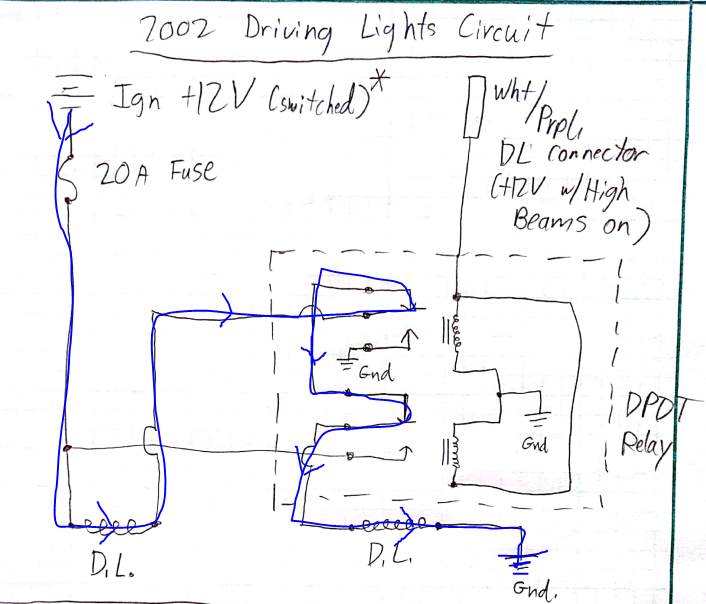 2002 Driving Lights Circuit
Ign +12V (switched)*
20A Fuse
Wht/
Prpl
DL connector
(+12V w/High
Beams on)
Gnd
Gnd
DPDT
Relay
D.L.
D.L.
Gnd.